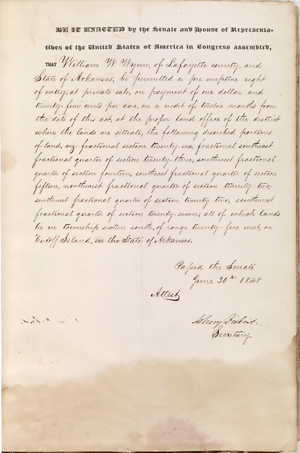 BE IT ENACTED by the Senate and House of Representa-
tives of the United States of America in Congress assembled,
THAT William W Wynn, of Lafayette county, and
State of Arkansas, be permitted a pre emptive right
of entry, at private sale, on payment of one dollar and
twenty-five cents per acre, on a credit of twelve months from
the date of this act, at the proper land office of the district
where the lands are situate, the following described portions
of land, viz: fractional section twenty six, fractional southeast
fractional quarter of section twenty three, southwest fractional
quarter of section fourteen, southeast fractional quarter of section
fifteen, northeast fractional quarter of section twenty two,
southeast fractional quarter of section twenty two, southwest
fractional quarter of section twenty-seven; all of which lands
lie in township sixteen south, of range twenty-five west, on
Island, in the State of Arkansas.
Passed the Senate
June 30th 1848
Attest
Secretary